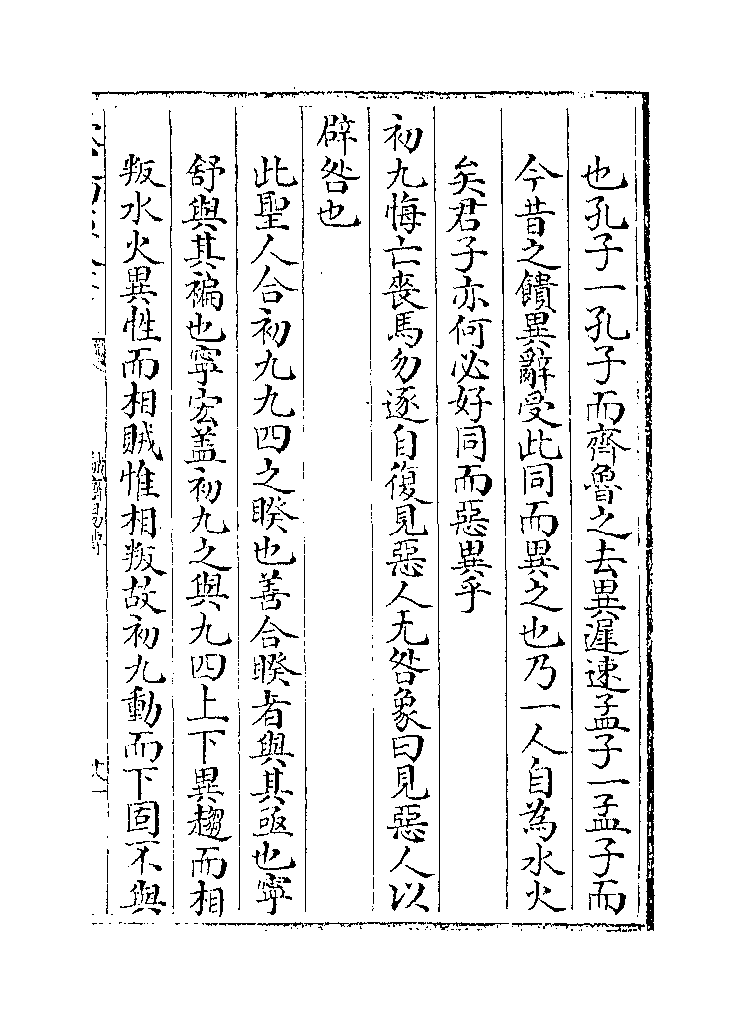 也孔子一孔子而齊魯之去異遲速孟子一孟子而
今昔之饋異辭受此同而異之也乃一人自為水火
矣君子亦何必好同而惡異乎
初九悔亡喪馬勿逐自復見惡人无咎象曰見惡人以
辟咎也
此聖人合初九九四之睽也善合睽者與其亟也寧
舒與其褊也寧宏盖初九之與九四上下異趨而相
叛水火異性而相賊惟相叛故初九動而下固不與
誠齋易傳